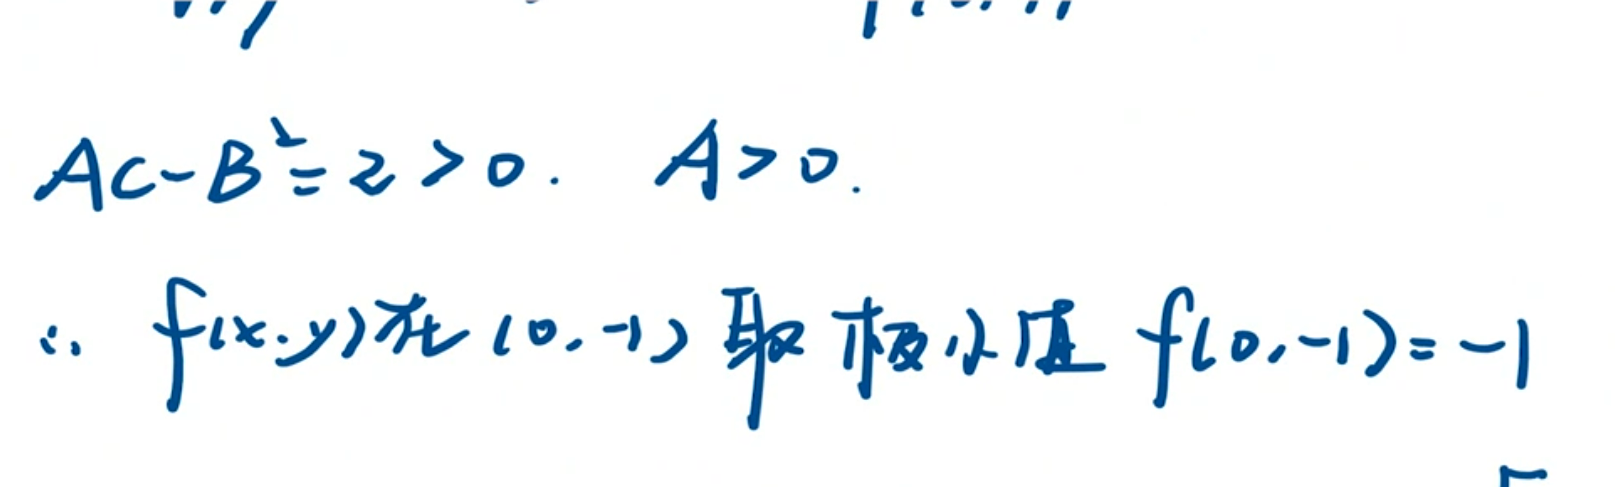 AC-B²=2>0. A>0.
∴ f(x.y)在(0,-1)取极小值 f(0,-1)=-1